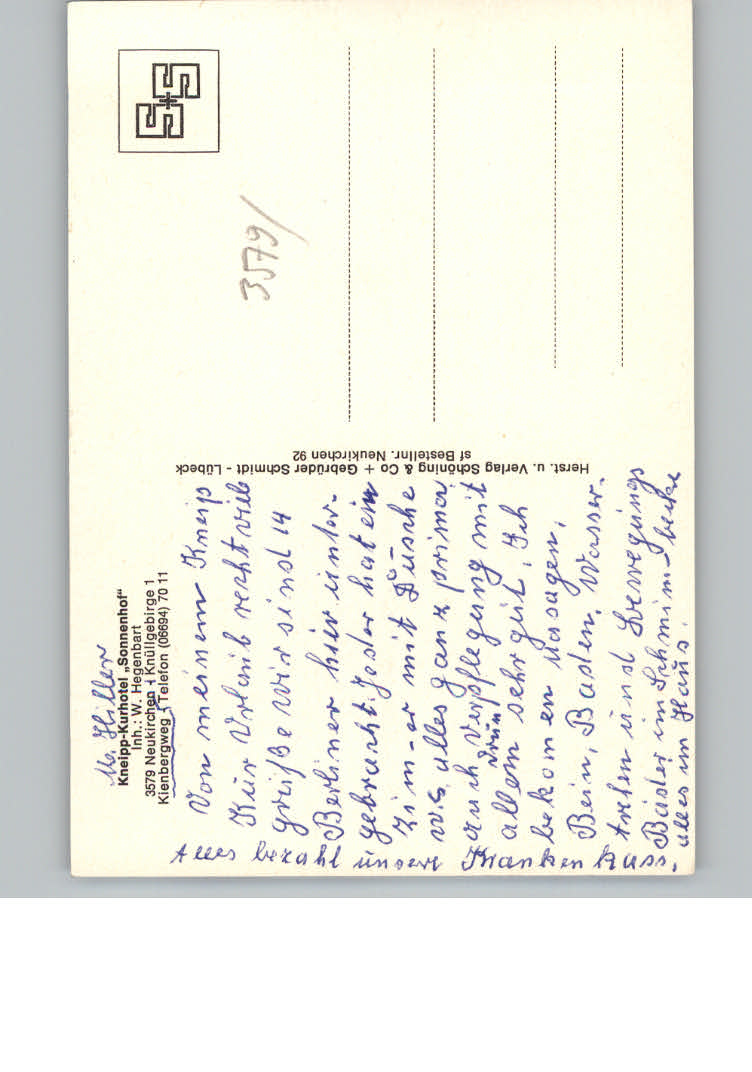 M. Hiller
Kneipp-Kurhotel „Sonnenhof"
Inh.: W. Hegenbart
3579 Neukirchen - Knüllgebirge 1
Kienbergweg - Telefon (06694) 70 11
Von meinem Kneip
Kur Urlaub recht viele
grüße Wir sind 14
Berliner hier unter-
gebracht. Jeder hat ein
Zim-er mit Dusche
w.c, alles ganz prima
auch Verpflegung mit
drum
allem sehr gut. Ich
bekomen
Bein, Baden, Wasser-
treten und Bewegungs
Bäder im Schwim-becke
alles im Haus.
Alles bezahl unsere Kranken kass,
Herst. u. Verlag Schöning & Co + Gebrüder Schmidt - Lübeck
sf Bestellnr. Neukirchen 92
3579/